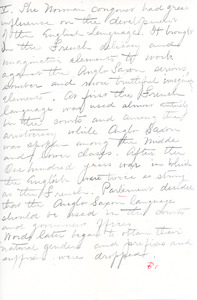 I. The Norman conquest had great
influence on the development
of the English Language. It brought
in the French delicacy and
imaginative elements to work
against the Anglo Saxon serious,
somber and more truthful
elements. At first the French
language was used almost entirely
in the courts and among the
aristocracy while Anglo Saxon
was spoken among the middle
and lower class. After the
One hundred years war in which
the English were twice as strong
as the French, Parliament decided
that the Anglo Saxon language
should be used in the courts
and government offices.
Words later began to lose their
natural gender and prefixes and
suffixes were dropped.